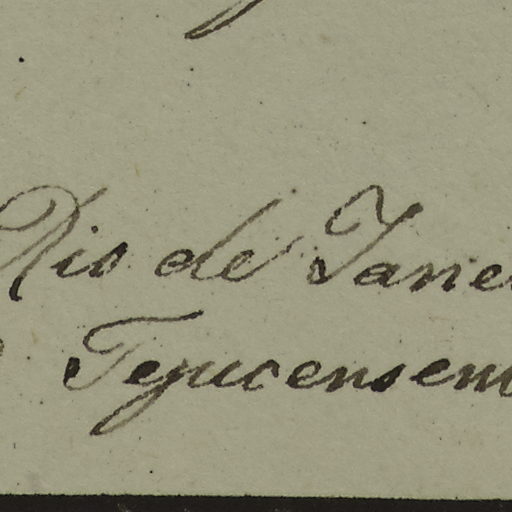 Rio de Janei
Tejucensem